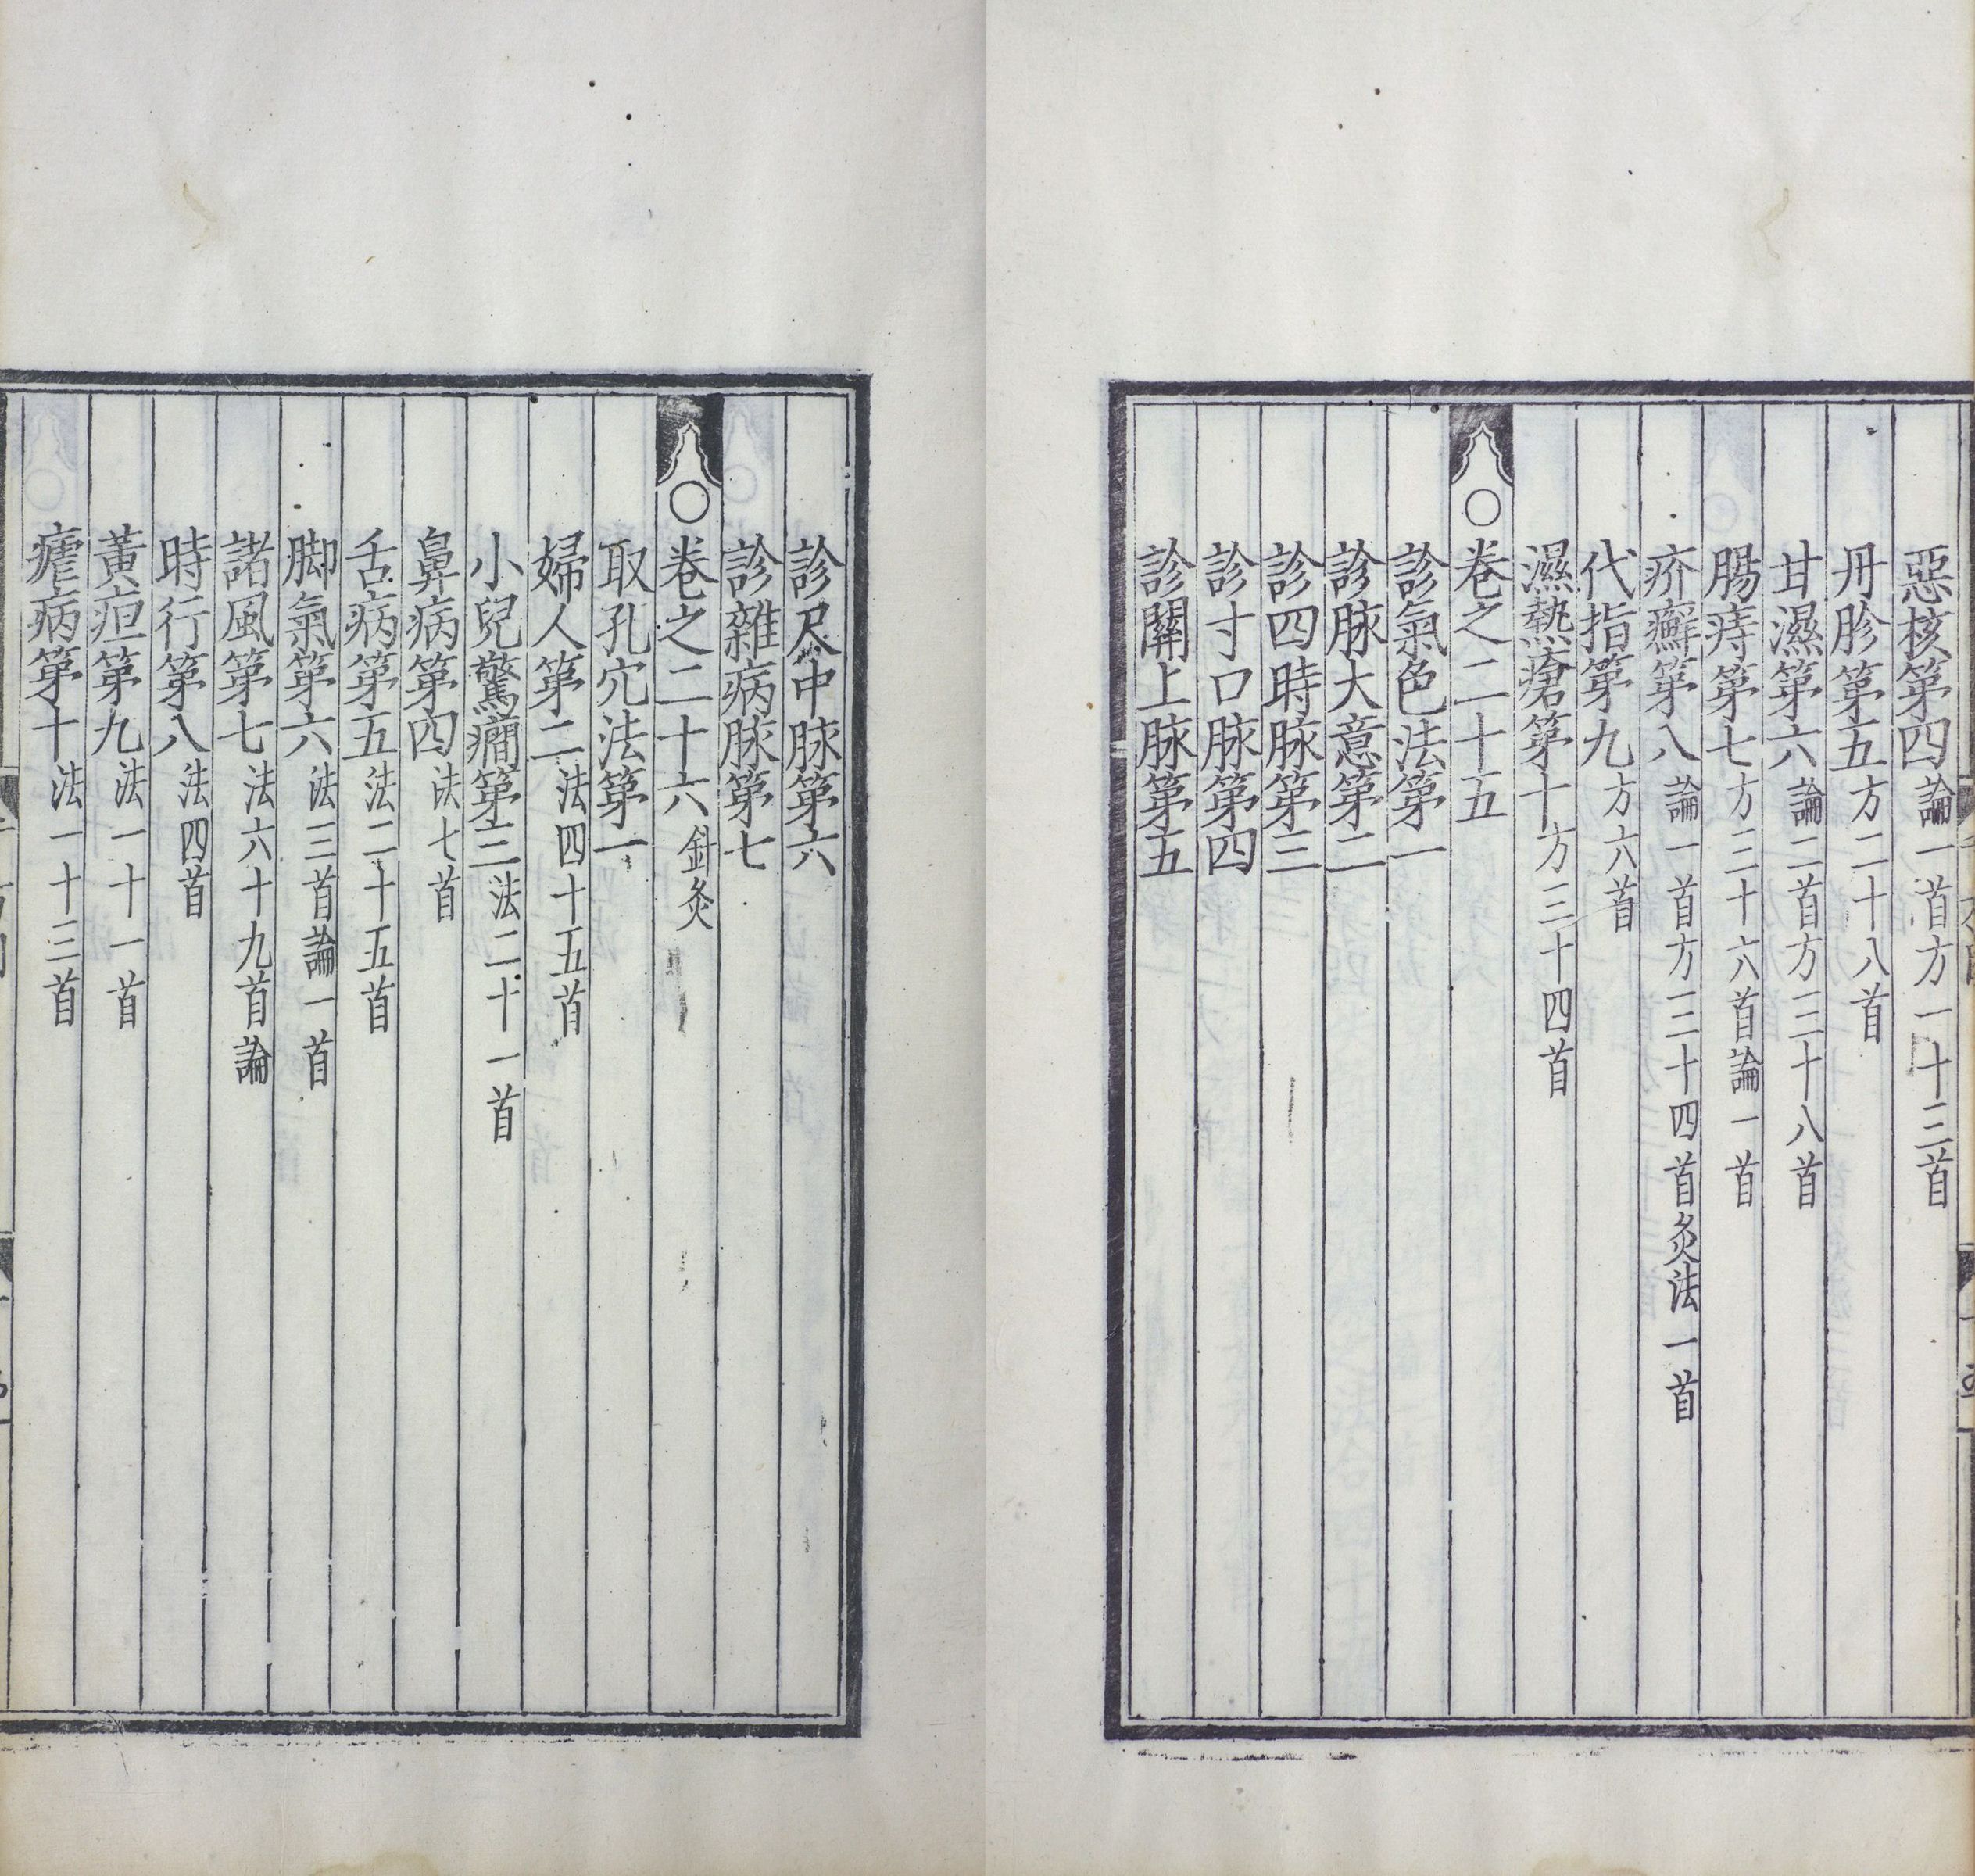 惡核第四論一首方一十三首
丹胗第五方二十八首
甘濕第六論二首方三十八首
腸痔第七方三十六首論一首
疥癬第八論一首方三十四首灸法一首
代指第九方六首
濕熱瘡第十方三十四首
○卷之二十五
診氣色法第一
診脉大意第二
診四時脉第三
診寸口脉第四
診關上脉第五
診尺中脉第六
診雜病脉第七
○卷之二十六針灸
取孔穴法第一
婦人第二法四十五首
小兒驚癎第三法二十一首
鼻病第四法七首
舌病第五法二十五首
脚氣第六法三首論一首
諸風第七法六十九首論
時行第八法四首
黃疸第九法一十一首
瘧病第十法一十三首